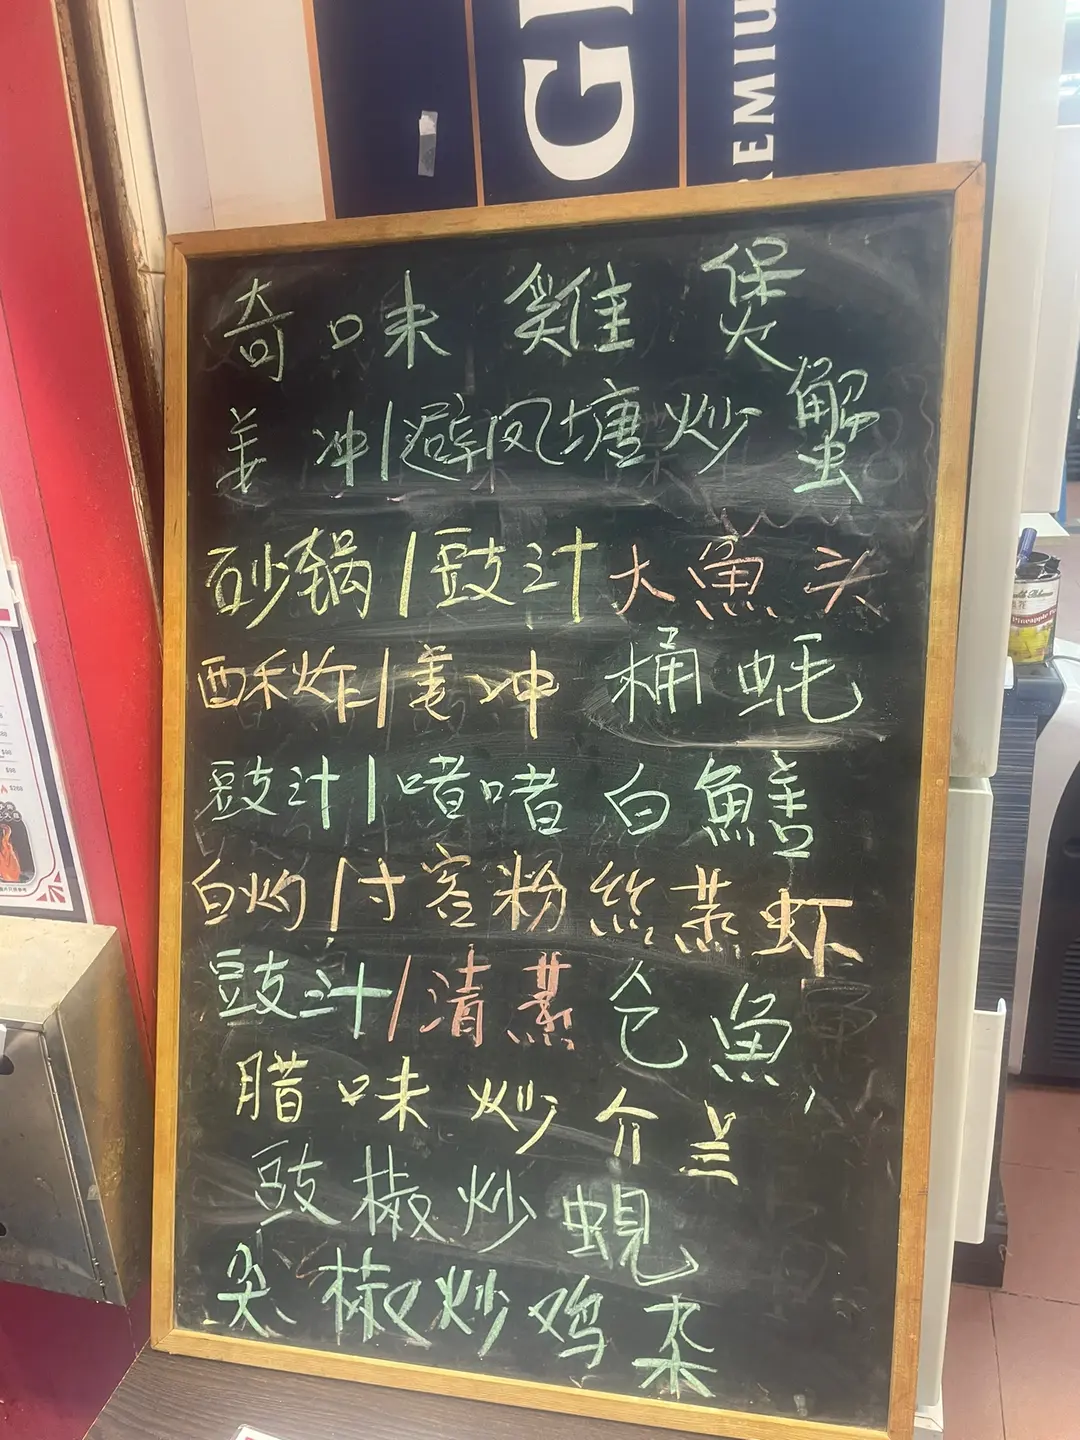 GI
REMIU
奇味雞煲
姜冲/避风塘炒蟹
砂锅/豉汁大魚头
酥炸/姜冲桶蚝
豉汁/啫啫白鱔
白灼/寸容粉絲蒸虾
豉汁/清蒸仓魚,
腊味炒介兰
豉椒炒蜆
尖椒炒鸡杂